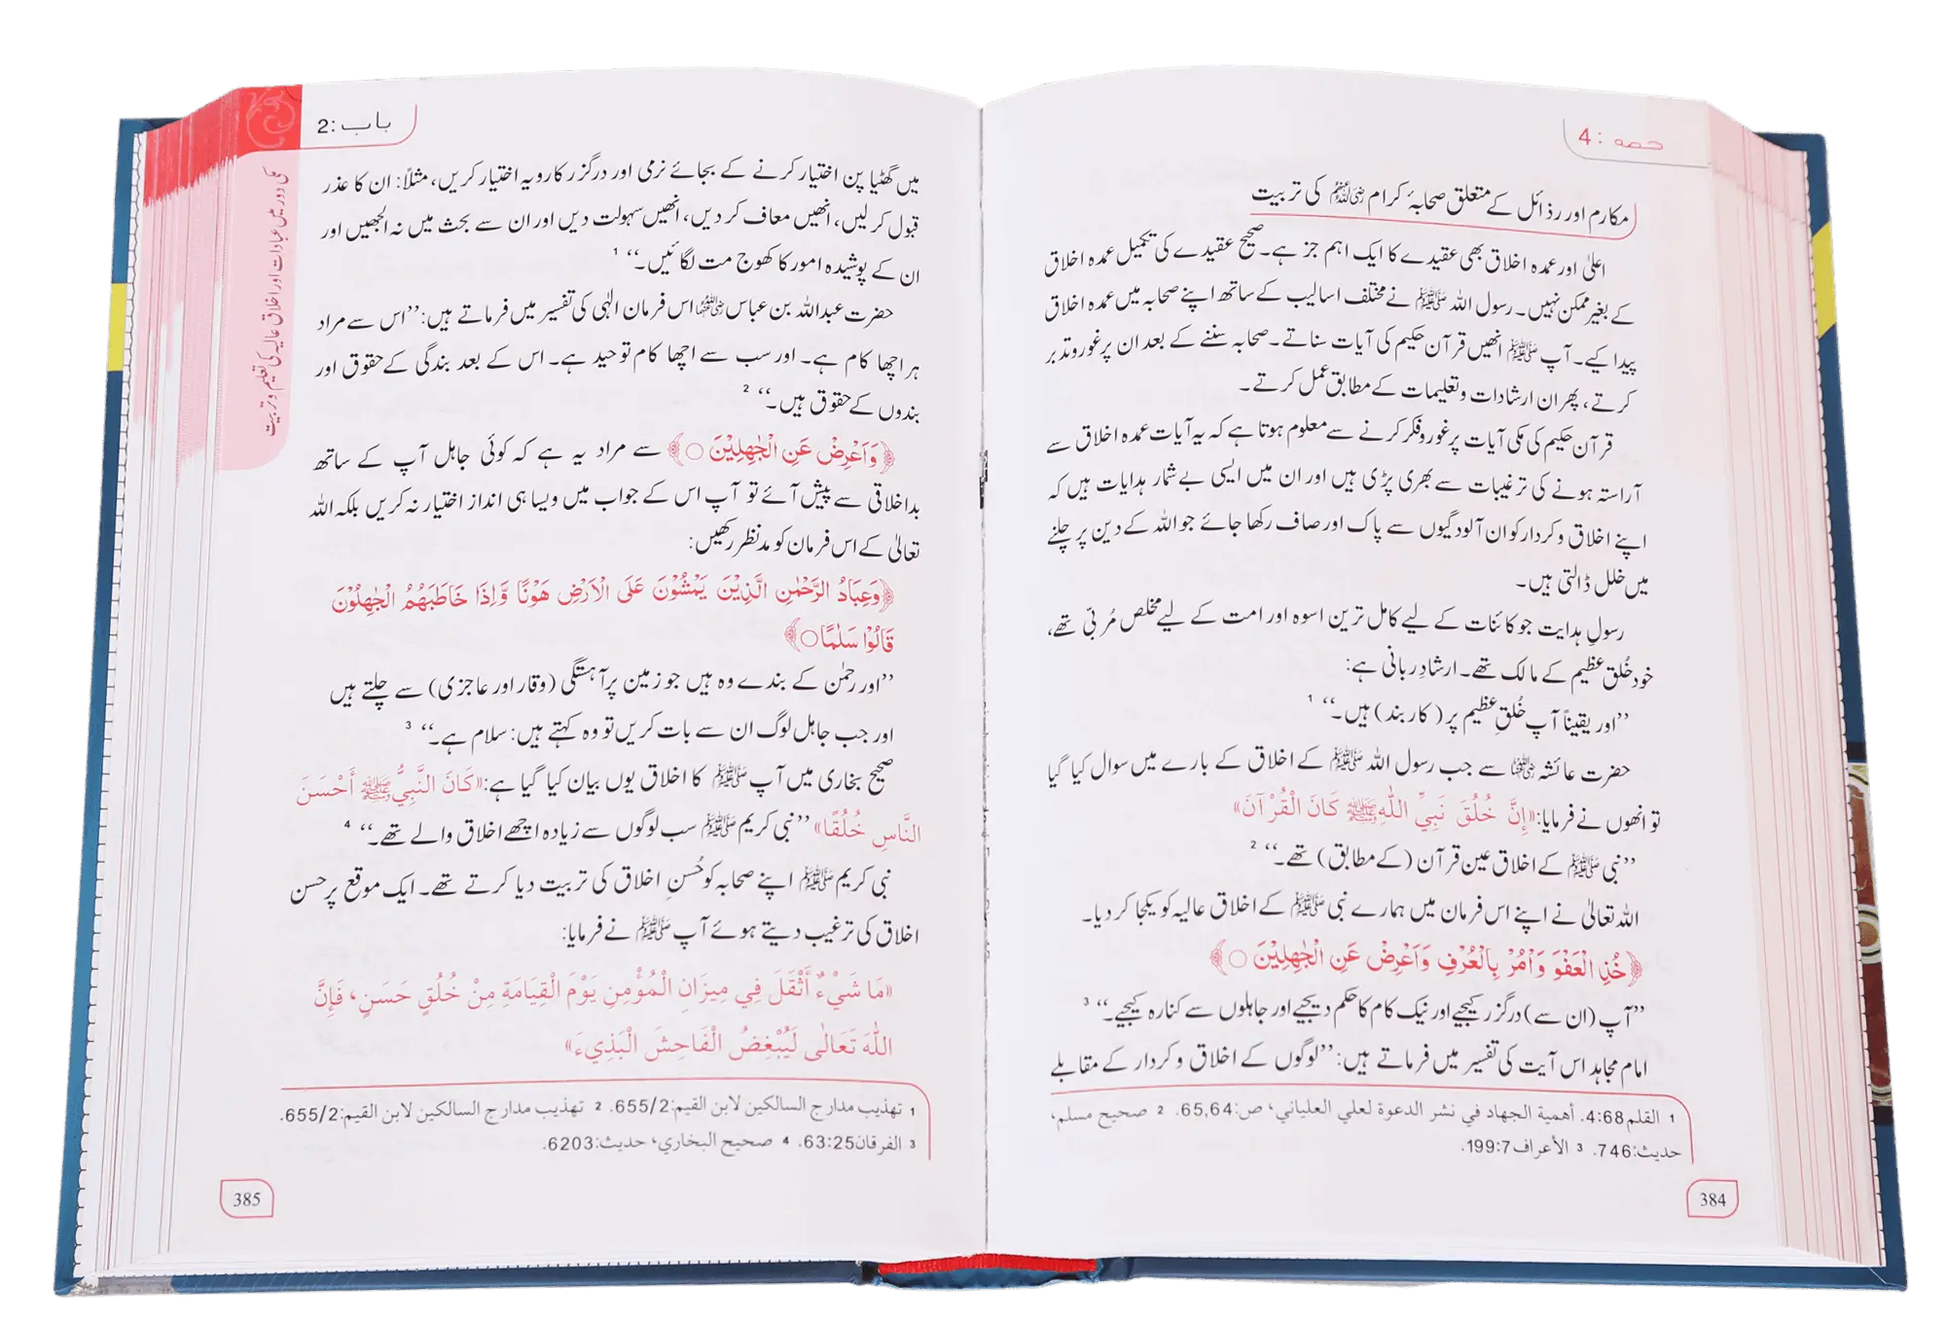 حصہ : 4
مکارم اور رذائل کے متعلق صحابۂ کرام رضی اللہ عنہم کی تربیت
اعلیٰ اور عمدہ اخلاق بھی عقیدے کا ایک اہم جز ہے۔ صحیح عقیدے کی تکمیل عمدہ اخلاق
کے بغیر ممکن نہیں۔ رسول اللہ ﷺ نے مختلف اسالیب کے ساتھ اپنے صحابہ میں عمدہ اخلاق
پیدا کیے۔ آپ ﷺ انھیں قرآن حکیم کی آیات سناتے۔ صحابہ سننے کے بعد ان پر غور و تدبر
کرتے، پھر ان ارشادات و تعلیمات کے مطابق عمل کرتے۔
قرآن حکیم کی مکی آیات پر غور و فکر کرنے سے معلوم ہوتا ہے کہ یہ آیات عمدہ اخلاق سے
آراستہ ہونے کی ترغیبات سے بھری پڑی ہیں اور ان میں ایسی بے شمار ہدایات ہیں کہ
اپنے اخلاق و کردار کو ان آلودگیوں سے پاک اور صاف رکھا جائے جو اللہ کے دین پر چلنے
میں خلل ڈالتی ہیں۔
رسولِ ہدایت جو کائنات کے لیے کامل ترین اسوہ اور امت کے لیے مخلص مُربّی تھے،
خود خُلق عظیم کے مالک تھے۔ ارشادِ ربانی ہے:
’’اور یقیناً آپ خُلقِ عظیم پر (کار بند) ہیں۔‘‘ 1
حضرت عائشہ رضی اللہ عنہا سے جب رسول اللہ ﷺ کے اخلاق کے بارے میں سوال کیا گیا
تو انھوں نے فرمایا: «إِنَّ خُلُقَ نَبِيِّ اللّٰهِ ﷺ كَانَ الْقُرْآنَ»
’’نبی ﷺ کے اخلاق عین قرآن (کے مطابق) تھے۔‘‘ 2
اللہ تعالیٰ نے اپنے اس فرمان میں ہمارے نبی ﷺ کے اخلاق عالیہ کو یکجا کر دیا۔
﴿خُذِ الْعَفْوَ وَاْمُرْ بِالْعُرْفِ وَاَعْرِضْ عَنِ الْجٰهِلِيْنَ ○﴾
’’آپ (ان سے) درگزر کیجیے اور نیک کام کا حکم دیجیے اور جاہلوں سے کنارہ کیجیے۔‘‘ 3
امام مجاہد اس آیت کی تفسیر میں فرماتے ہیں: ’’لوگوں کے اخلاق و کردار کے مقابلے
1 القلم 4:68. أهمية الجهاد في نشر الدعوة لعلي العلياني، ص: 65,64. 2 صحيح مسلم،
حديث: 746. 3 الأعراف 199:7.
384
باب : 2
مکی دور میں عبادات اور اخلاق عالیہ کی تعلیم و تربیت
میں گھٹیا پن اختیار کرنے کے بجائے نرمی اور درگزر کا رویہ اختیار کریں، مثلاً: ان کا عذر
قبول کر لیں، انھیں معاف کر دیں، انھیں سہولت دیں اور ان سے بحث میں نہ الجھیں اور
ان کے پوشیدہ امور کا کھوج مت لگائیں۔‘‘ 1
حضرت عبداللہ بن عباس رضی اللہ عنہما اس فرمان الٰہی کی تفسیر میں فرماتے ہیں: ’’اس سے مراد
ہر اچھا کام ہے۔ اور سب سے اچھا کام توحید ہے۔ اس کے بعد بندگی کے حقوق اور
بندوں کے حقوق ہیں۔‘‘ 2
﴿وَاَعْرِضْ عَنِ الْجٰهِلِيْنَ ○﴾ سے مراد یہ ہے کہ کوئی جاہل آپ کے ساتھ
بداخلاقی سے پیش آئے تو آپ اس کے جواب میں ویسا ہی انداز اختیار نہ کریں بلکہ اللہ
تعالیٰ کے اس فرمان کو مدنظر رکھیں:
﴿وَعِبَادُ الرَّحْمٰنِ الَّذِيْنَ يَمْشُوْنَ عَلَى الْاَرْضِ هَوْنًا وَّاِذَا خَاطَبَهُمُ الْجٰهِلُوْنَ
قَالُوْا سَلٰمًا○﴾
’’اور رحمٰن کے بندے وہ ہیں جو زمین پر آہستگی (وقار اور عاجزی) سے چلتے ہیں
اور جب جاہل لوگ ان سے بات کریں تو وہ کہتے ہیں: سلام ہے۔‘‘ 3
صحیح بخاری میں آپ ﷺ کا اخلاق یوں بیان کیا گیا ہے: «كَانَ النَّبِيُّ ﷺ أَحْسَنَ
النَّاسِ خُلُقًا» ’’نبی کریم ﷺ سب لوگوں سے زیادہ اچھے اخلاق والے تھے۔‘‘ 4
نبی کریم ﷺ اپنے صحابہ کو حُسنِ اخلاق کی تربیت دیا کرتے تھے۔ ایک موقع پر حسن
اخلاق کی ترغیب دیتے ہوئے آپ ﷺ نے فرمایا:
«مَا شَيْءٌ أَثْقَلَ فِي مِيزَانِ الْمُؤْمِنِ يَوْمَ الْقِيَامَةِ مِنْ خُلُقٍ حَسَنٍ، فَإِنَّ
اللّٰهَ تَعَالٰى لَيُبْغِضُ الْفَاحِشَ الْبَذِيءَ»
1 تهذيب مدارج السالكين لابن القيم: 655/2. 2 تهذيب مدارج السالكين لابن القيم: 655/2.
3 الفرقان 63:25. 4 صحيح البخاري، حديث: 6203.
385